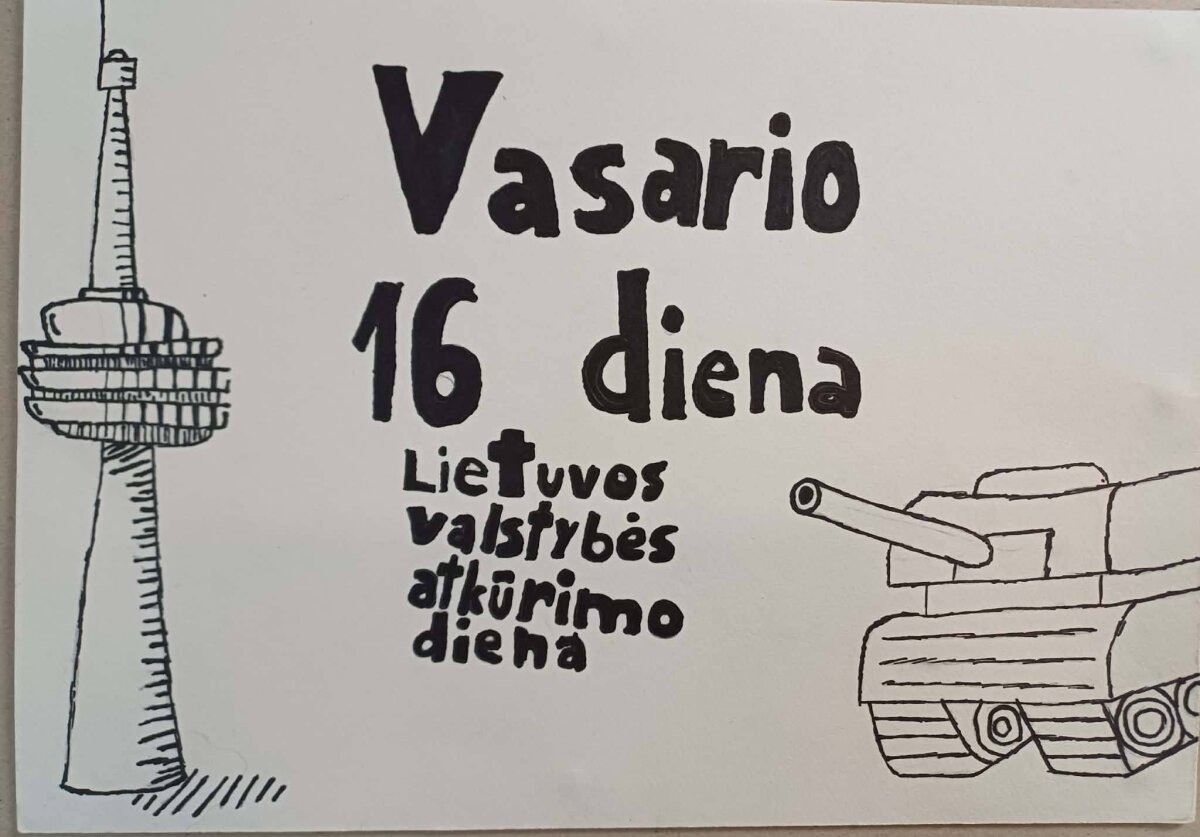 Vasario
16 diena
Lietuvos
valstybės
atkūrimo
diena